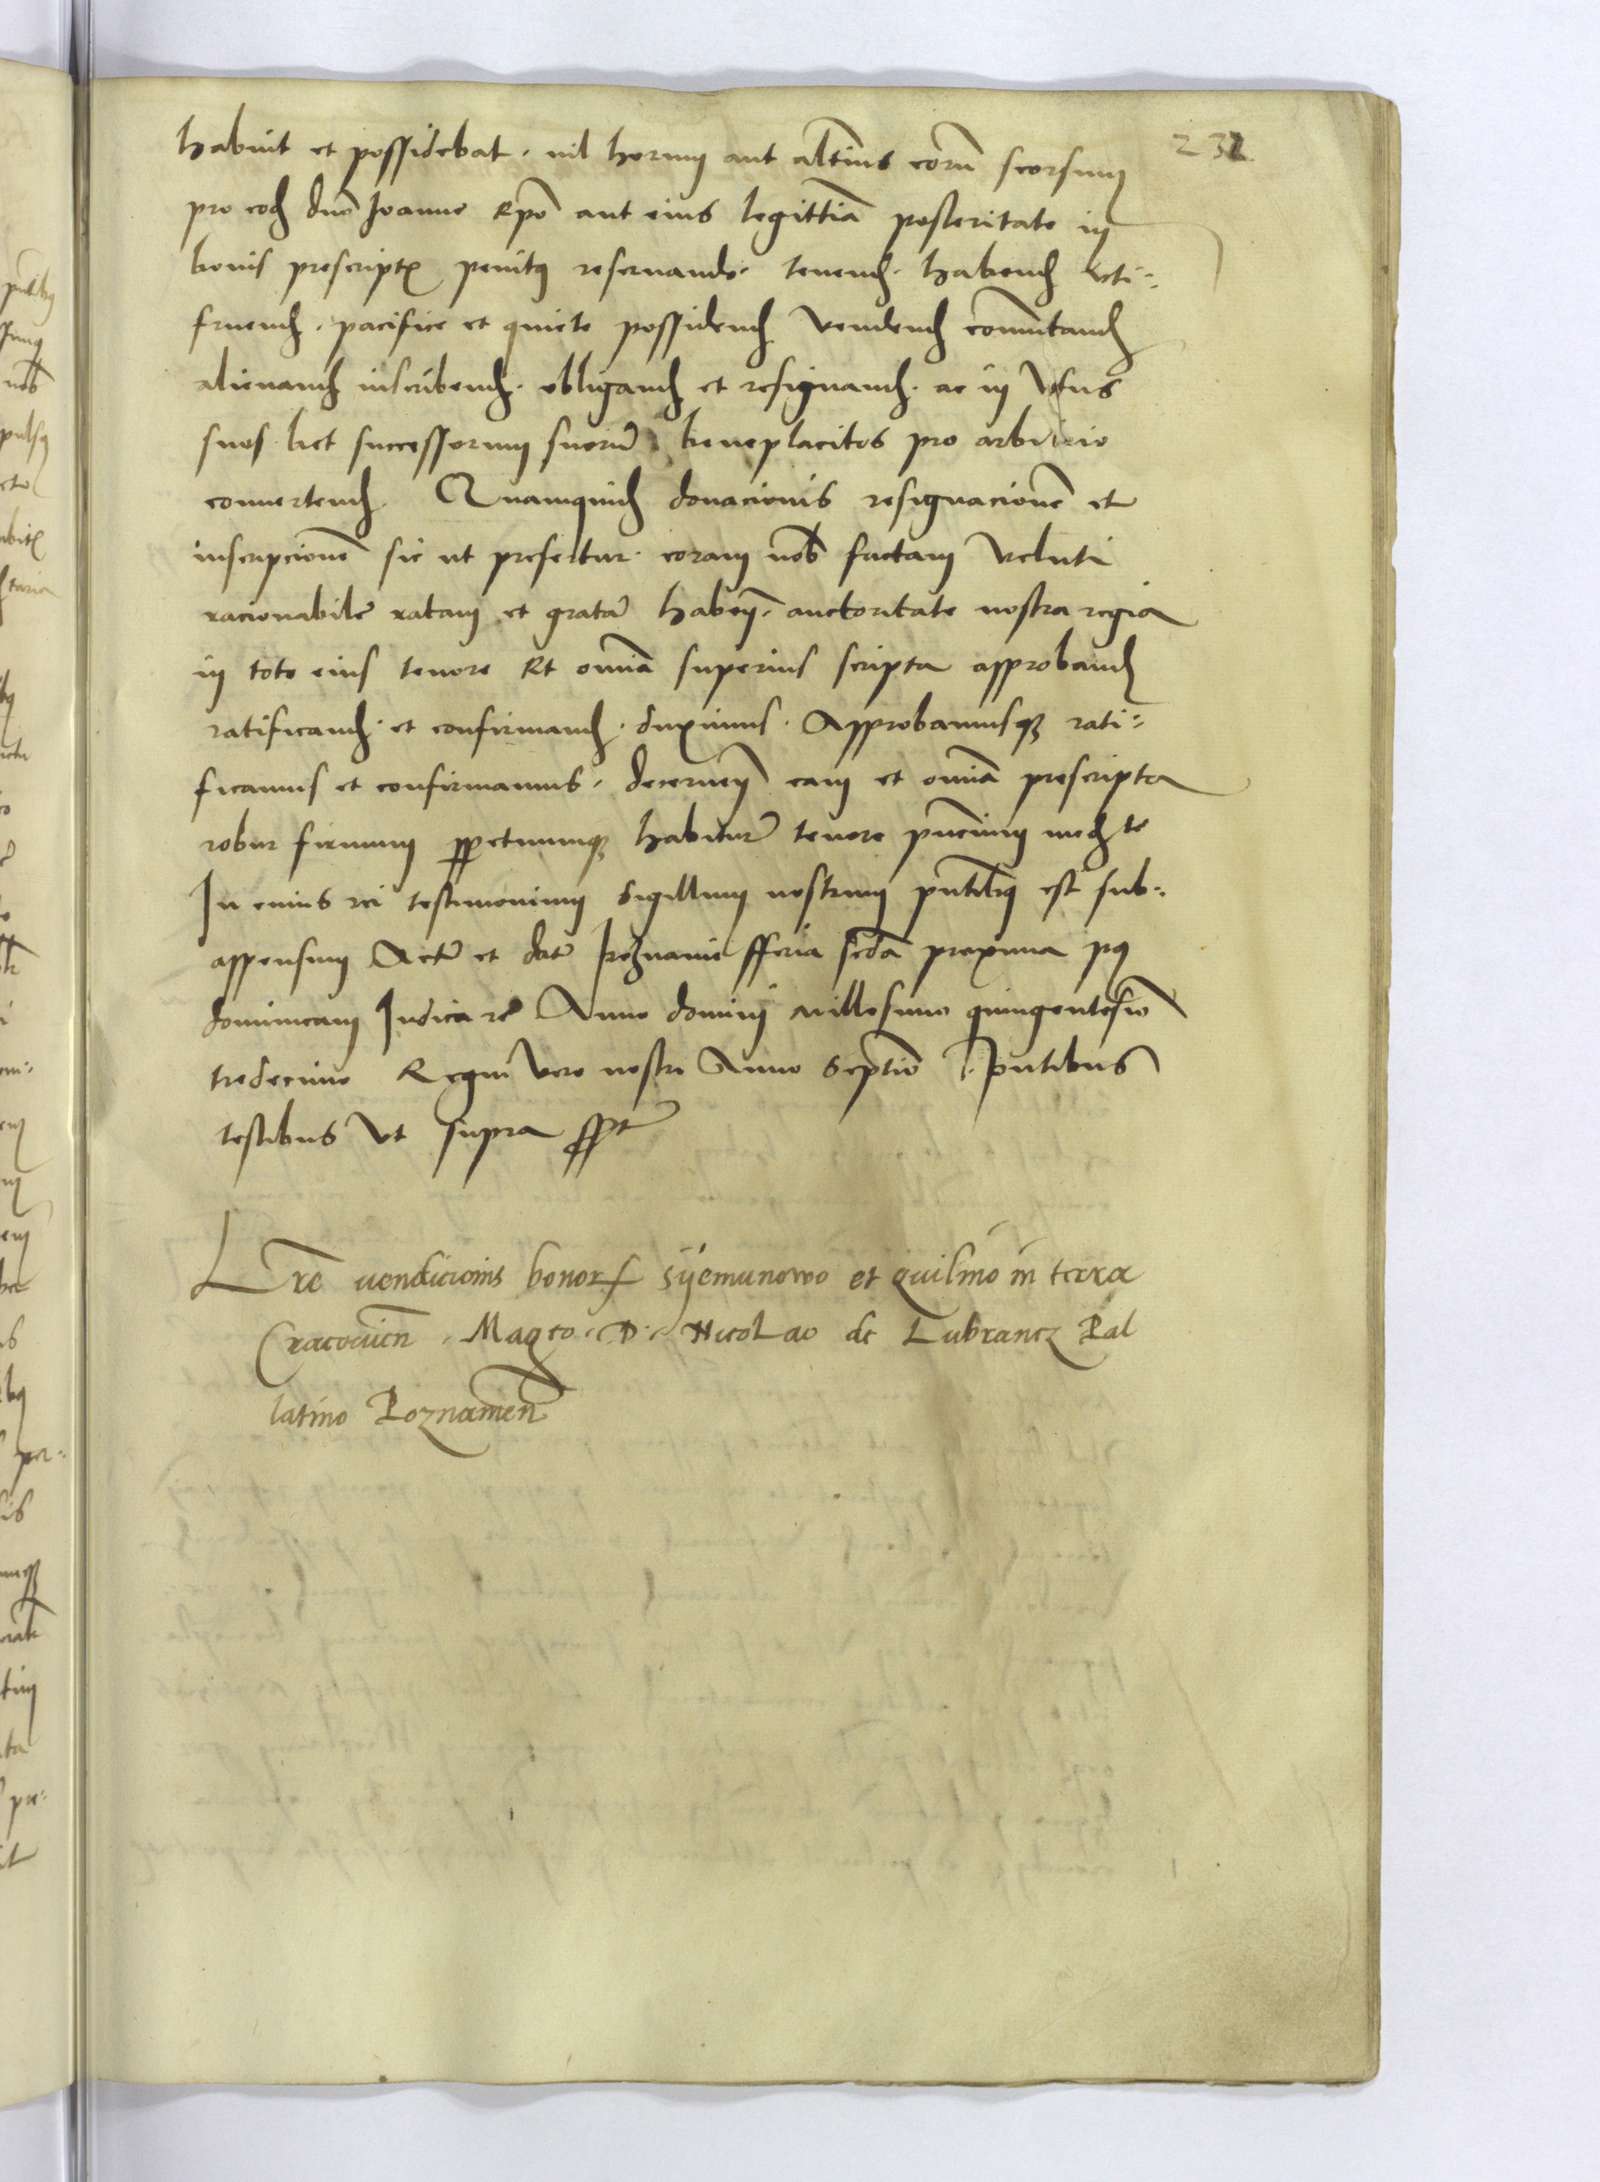 232
habuit et possidebat. nil horum aut alterius eorum seorsum
pro eod dno Joanne Epo aut eius legittia posteritate in
bonis prescriptis penitus reservando. tenend. habend uti-
fruend. pacifice et quiete possidend vendend comutand
alienand inscribend. obligand et resignand. ac in Usus
suos licet successorum suorum beneplacitos pro arbitrio
convertend. Quamquid donacionis resignacione et
inscripcione sic ut prefertur. coram nob factam veluti
racionabile ratam et grata haben. auctoritate nostra regia
in toto eius tenore Et omnia superius scripta approband
ratificand. et confirmand. duximus. Approbamusque rati-
ficamus et confirmamus. decernen eam et omnia prescripta
robur firmum perpetuumque habitura tenore pncium mediante
In cuius rei testimonium Sigillum nostrum pntibus est sub-
appensum Actum et datum Poznanie fferia secda proxima post
dominicam Judica re Anno domini millesimo quingentesimo
tredecimo Regni vero nostri Anno Septimo Pntibus
testibus Ut supra
Lre vendicionis bonor Syemunowo et Quilino in terra
Cracovien. Magco. D. Nicolao de Lubrancz Pal
latino Poznanien